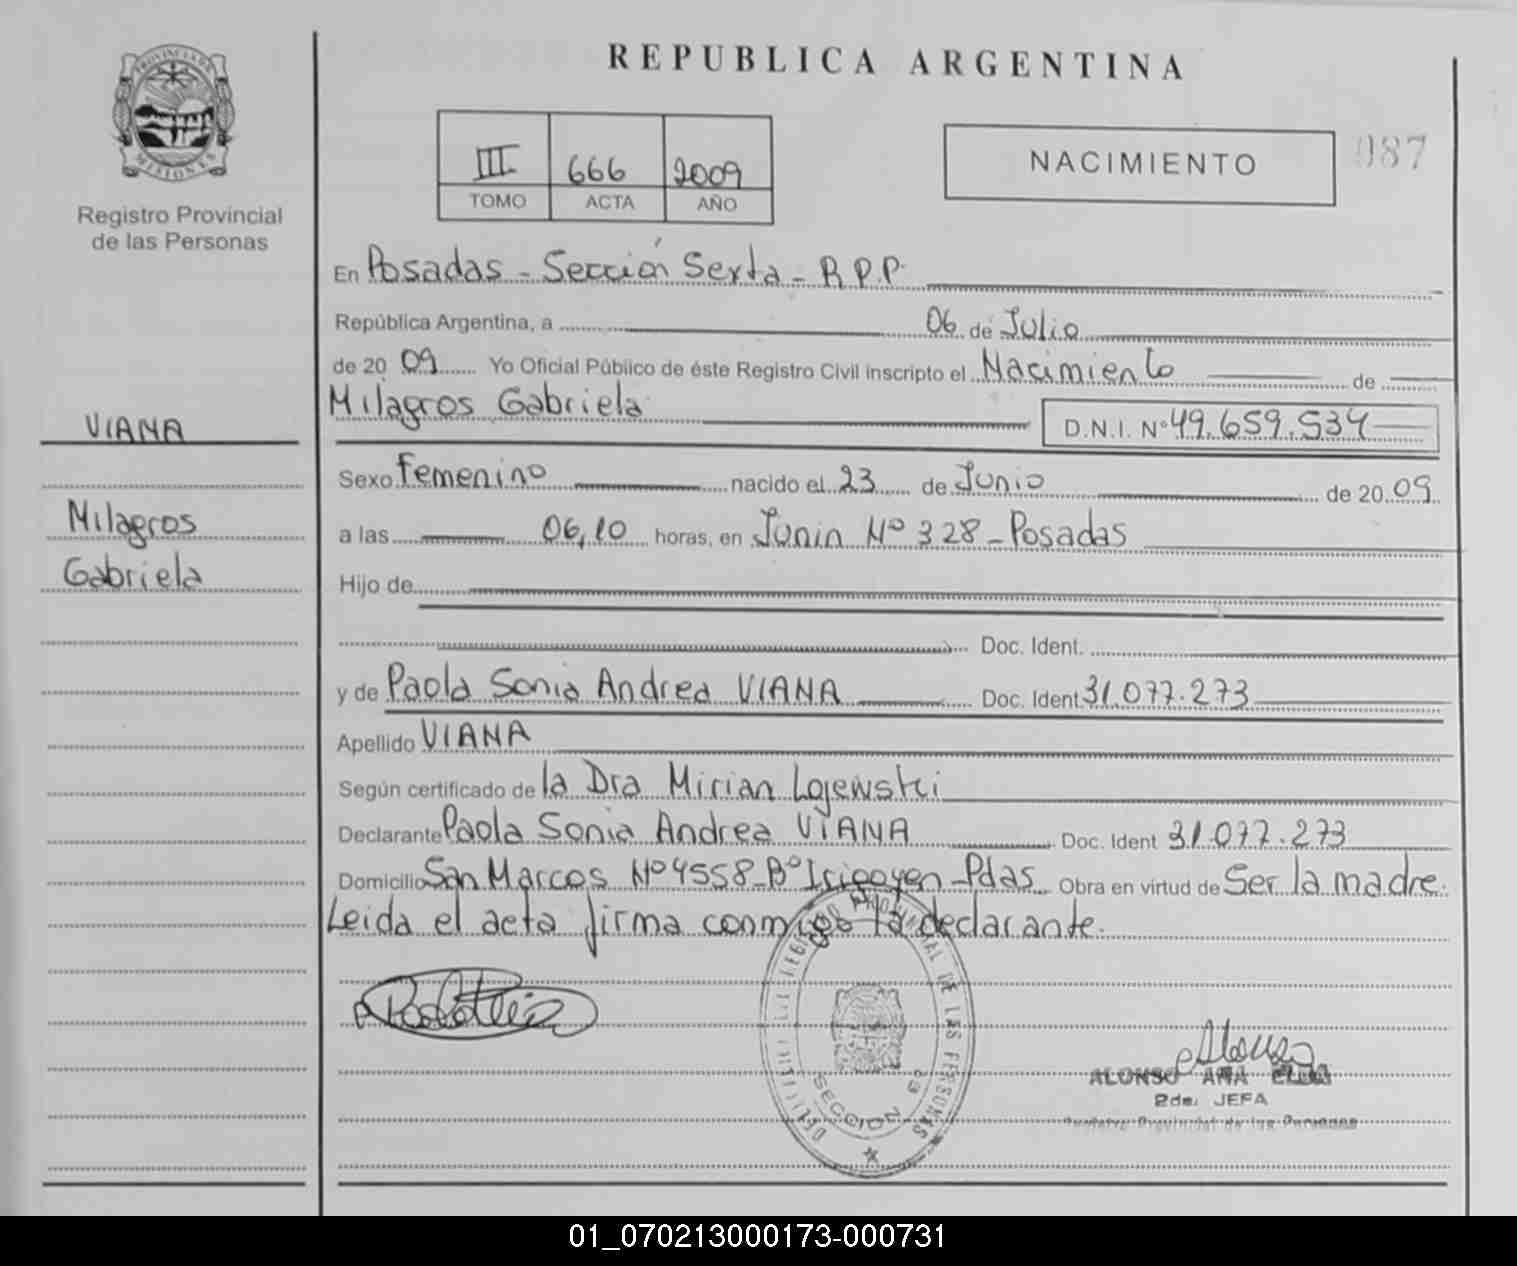 REPUBLICA ARGENTINA
PROVINCIA DE
MISIONES
Registro Provincial
de las Personas
III 666 2009
TOMO ACTA AÑO
NACIMIENTO
087
En Posadas - Sección Sexta - R.P.P.
República Argentina, a 06 de Julio
de 20 09 Yo Oficial Público de éste Registro Civil inscripto el Nacimiento de
Milagros Gabriela D.N.I. Nº 49.659.534
VIANA
Milagros
Gabriela
Sexo Femenino nacido el 23 de Junio de 20 09
a las 06,10 horas, en Junin Nº 328 - Posadas
Hijo de
Doc. Ident.
y de Paola Sonia Andrea VIANA Doc. Ident 31.077.273
Apellido VIANA
Según certificado de la Dra Mirian Lojewski
Declarante Paola Sonia Andrea VIANA Doc. Ident 31.077.273
Domicilio San Marcos Nº 4558 - Bº Irigoyen - Pdas Obra en virtud de Ser la madre.
Leida el acta firma conmigo la declarante.
REGISTRO PROVINCIAL DE LAS PERSONAS
SECCION
ALONSO ANA
2da. JEFA
Registro Provincial de las Personas
01_070213000173-000731